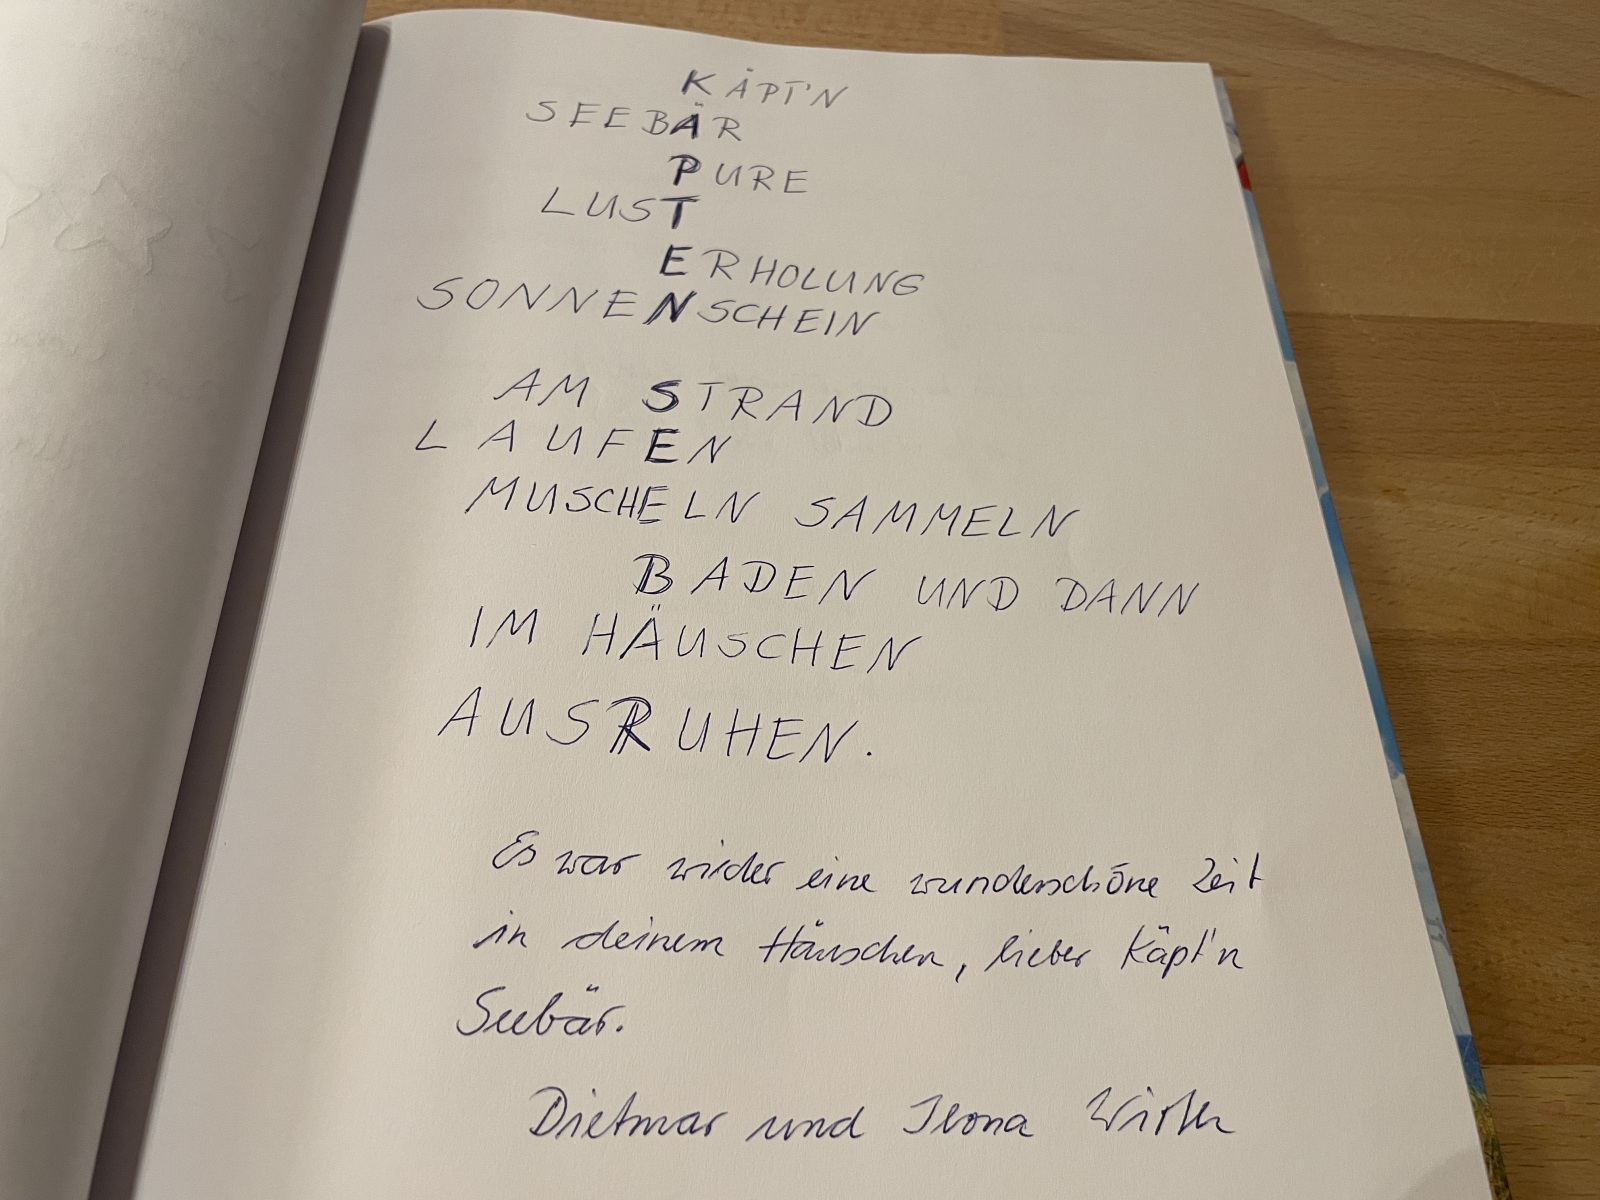 KÄPT'N
SEEBÄR
PURE
LUST
ERHOLUNG
SONNENSCHEIN
AM STRAND
LAUFEN
MUSCHELN SAMMELN
BADEN UND DANN
IM HÄUSCHEN
AUSRUHEN.
Es war wieder eine wunderschöne Zeit
in deinem Häuschen, lieber Käpt'n
Seebär.
Dietmar und Ilona Wirth